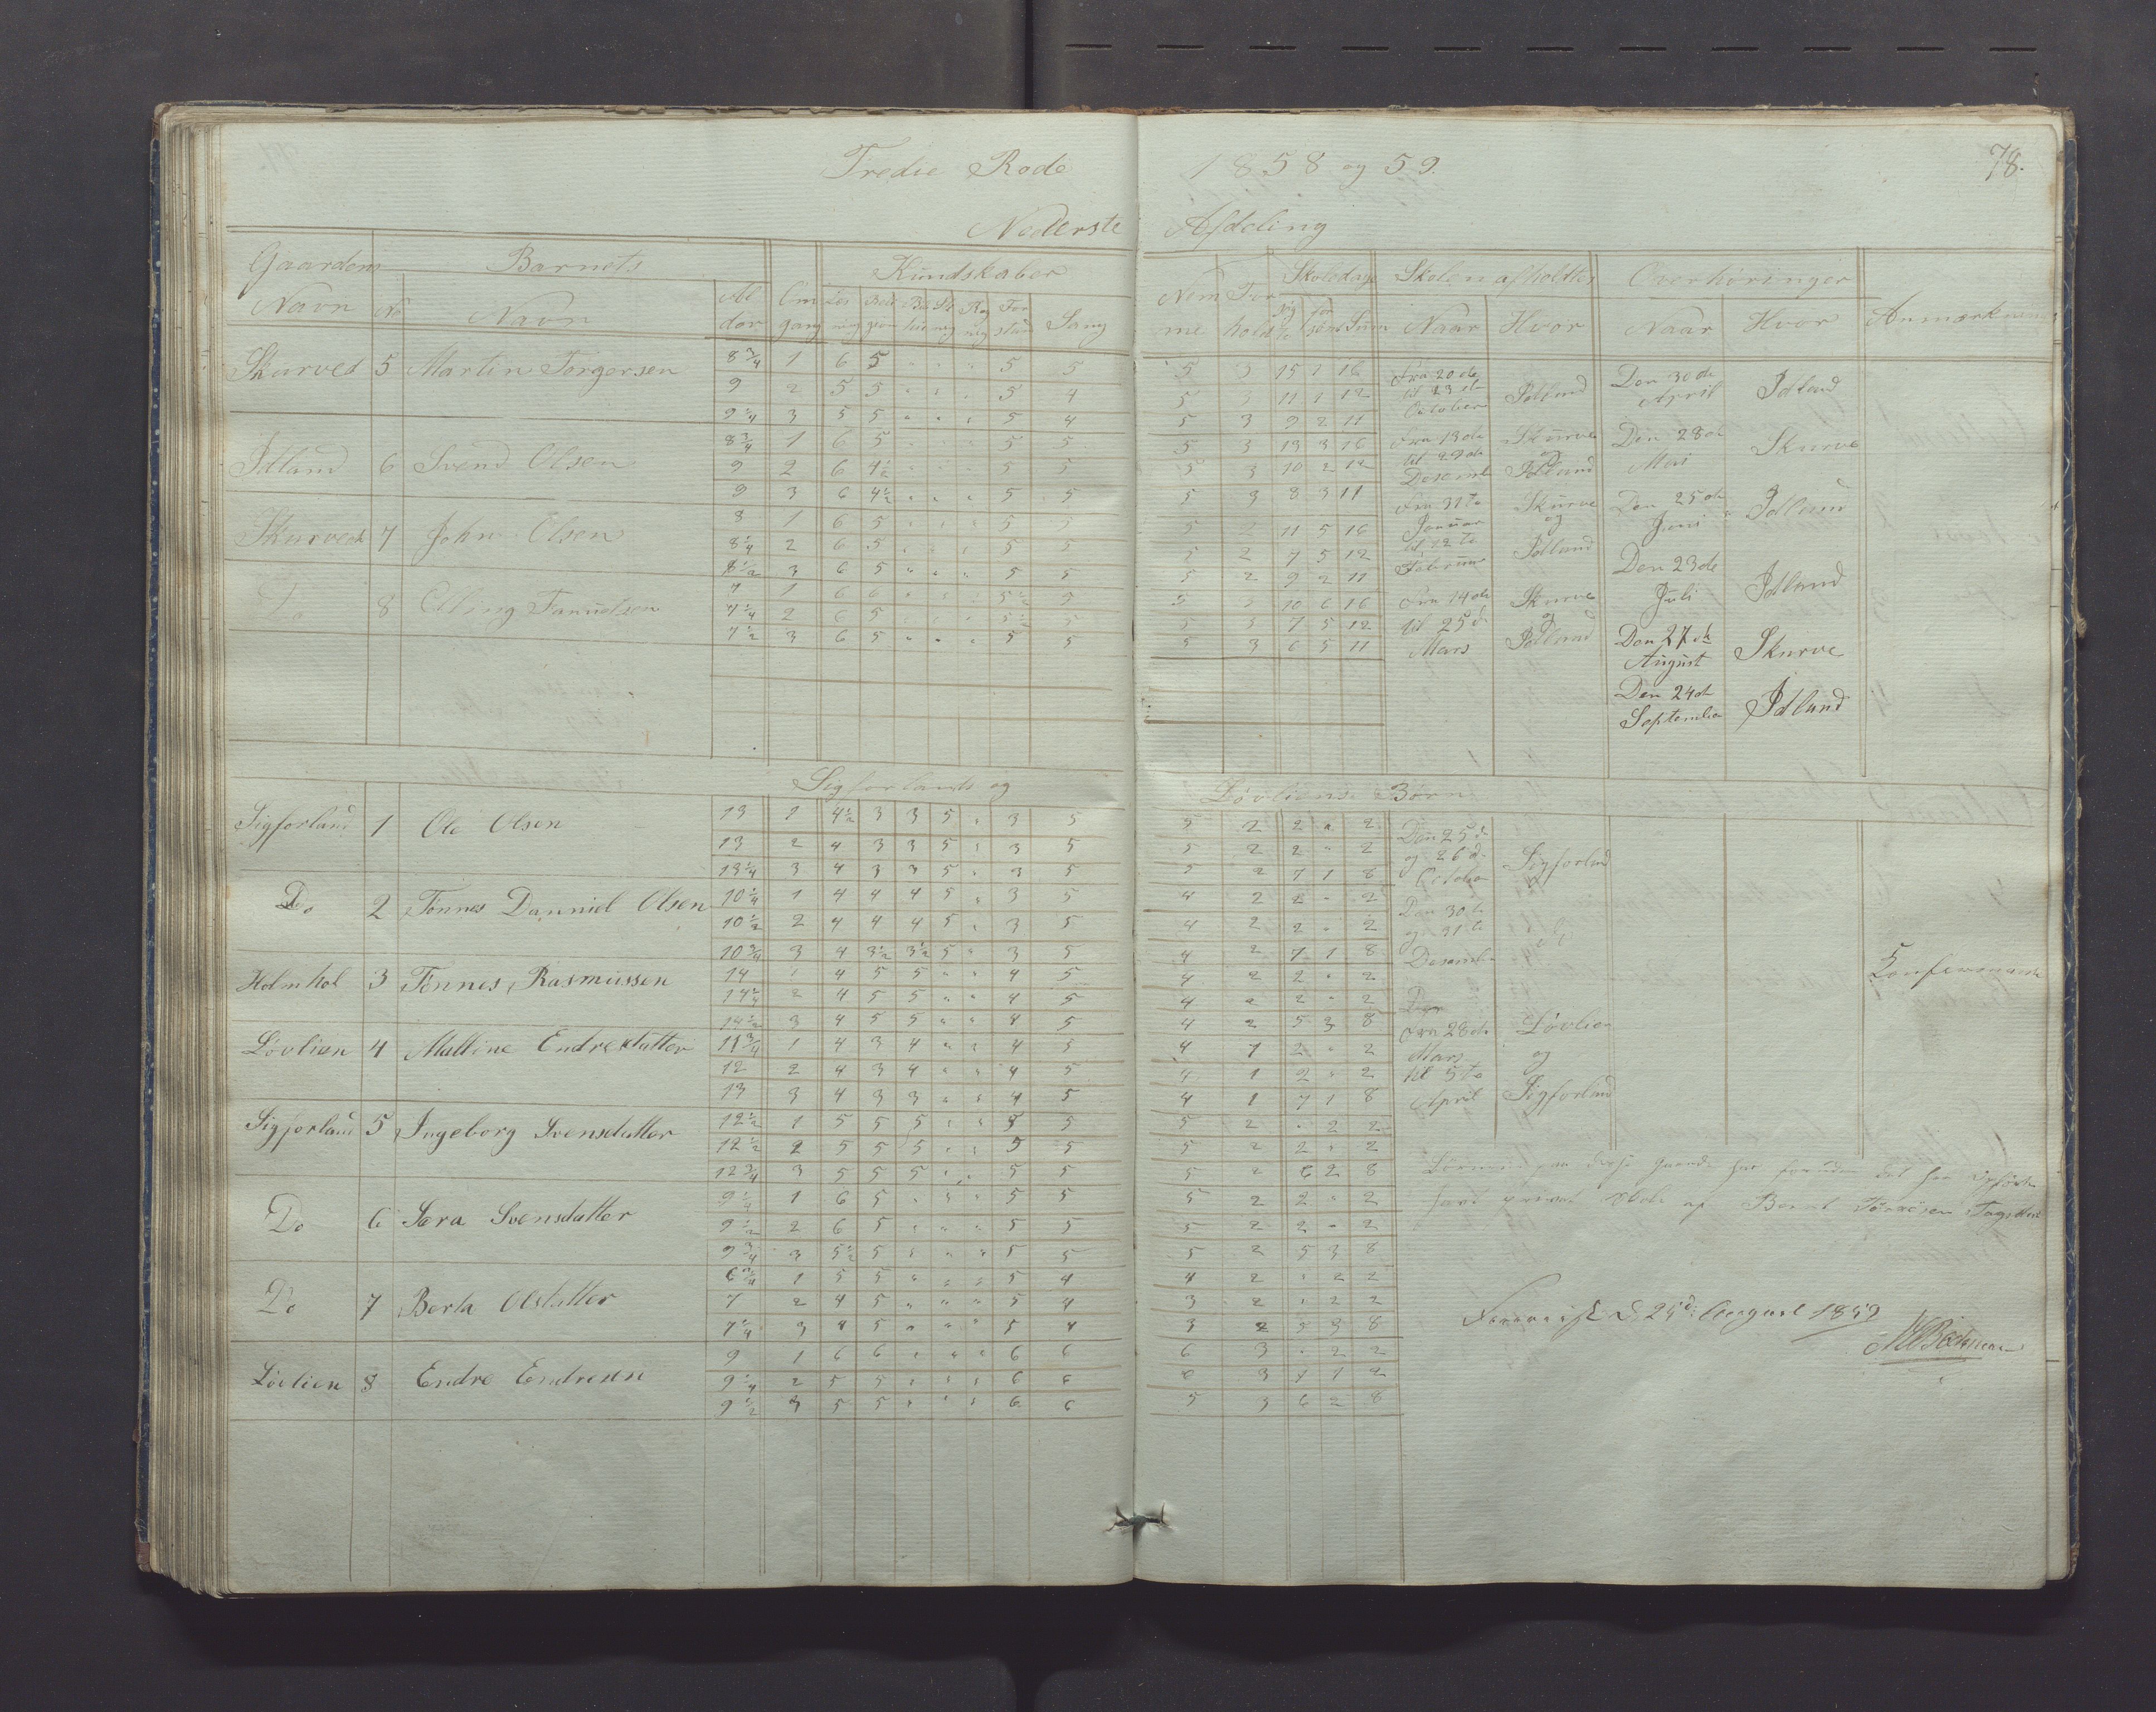 Tredie Rode 1858 og 59. 78.
Nederste Afdeling
Gaardens Barnets Kundskaber Nem For Skoledage Skolen afholdtes Overhøringer
Navn No Navn Al der Om gang Læs ning Reli gion Bib. hist Sk ng Reg ning For stand Sang me hold Søg te for sømt Sum Naar Hvor Naar Hvor Anmærkning
Skurved 5 Martin Torgersen 8 3/4 1 6 5 " " " 5 5 5 3 15 1 16 Fra 20de Den 30de
9 2 5 5 " " " 5 4 5 3 11 1 12 til 23de Idland April Idland
9 1/4 3 5 5 " " " 5 4 5 3 9 2 11 October
Idland 6 Svend Olsen 8 3/4 1 6 5 " " " 5 5 5 3 13 3 16 Fra 13de Skurve Den 28de Skurve
9 2 6 4 1/2 " " " 5 5 5 3 10 2 12 til 29de og Mai
9 3 6 4 1/2 " " " 5 5 5 3 8 3 11 Desemb Idland
Skurved 7 John Olsen 8 1 6 5 " " " 5 5 5 2 11 5 16 Fra 31te Skurve Den 25de Idland
8 1/4 2 6 5 " " " 5 5 5 2 7 5 12 Januar og Juni
8 1/2 3 6 5 " " " 5 5 5 2 9 2 11 til 12te Idland
Februar Den 23de
Do 8 Elling Samuelsen 7 1 6 6 " " " 5 1/2 5 5 3 10 6 16 Fra 14de Skurve Juli Idland
7 1/4 2 6 5 " " " 5 1/2 5 5 3 7 5 12 til 25d og
7 1/2 3 6 5 " " " 5 5 5 3 6 5 11 Mars Idland Den 27de
August Skurve
Den 24de
September Idland
Sigforlands og Løvliens Børn
Sigforland 1 Ole Olsen 13 1 4 1/2 3 3 5 " 3 5 5 2 2 " 2 Den 25de
13 2 4 3 3 5 " 3 5 5 2 2 " 2 og 26d Sigforland
13 1/4 3 4 3 3 5 " 3 5 5 2 7 1 8 October
Do 2 Tønnes Danniel Olsen 10 1/4 1 4 4 4 5 " 3 5 4 2 2 " 2 Den 30te
10 1/2 2 4 4 4 5 " 3 5 4 2 2 " 2 og 31te do
10 3/4 3 4 3 1/2 3 1/2 5 " 3 5 4 2 7 1 8 Desemb
Holmhol 3 Tønnes Rasmussen 14 1 4 5 5 " " 4 5 4 2 2 " 2 Konfermerede
14 1/4 2 4 5 5 " " 4 5 4 2 2 " 2
14 1/2 3 4 5 5 " " 4 5 4 2 5 3 8 Fra 28de Løvlien
Løvlien 4 Maltine Endresdatter 11 3/4 1 4 3 4 " " 4 5 4 1 2 " 2 Mars og
12 2 4 3 4 " " 4 5 4 1 2 " 2 til 5te
13 3 4 3 3 " " 4 5 4 1 7 1 8 April Sigforland
Sigforland 5 Ingeborg Svensdatter 12 1/2 1 5 5 5 " " 5 5 5 2 " 2 2
12 1/2 2 5 5 5 " " 5 5 5 2 2 " 2
12 3/4 3 5 5 5 " " 5 5 5 2 6 2 8
Do 6 Sara Svensdatter 9 1/4 1 6 5 " " " 5 5 5 2 2 " 2
9 1/2 2 6 5 " " " 5 5 5 2 2 " 2
9 3/4 3 5 1/2 5 " " " 5 5 5 2 5 3 8
Børnene paa disse Gaarde har foruden det her opførte
havt privat Skole af Bernt
Do 7 Berta Olsdatter 6 3/4 1 5 5 " " " 5 4 4 2 " 2 2
7 2 4 5 " " " 5 4 3 2 " 2 2
7 1/4 3 4 5 " " " 5 4 3 2 5 3 8
Løvlien 8 Endre Endresen 9 1 6 6 " " " 6 6 6 3 " 2 2
9 1/4 2 5 5 " " " 6 6 6 3 1 1 2
9 1/2 3 5 5 " " " 6 6 5 3 6 2 8
d 25d August 1859